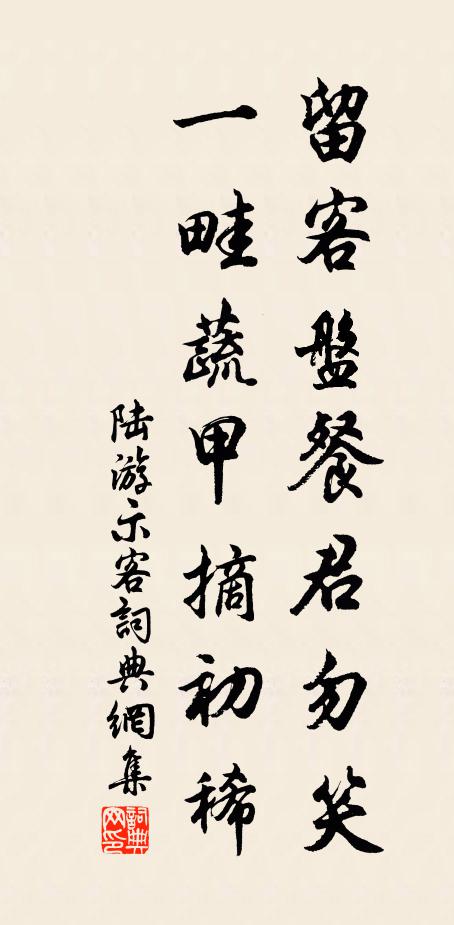 留客盤餐君勿笑
一畦蔬甲摘初稀
陆游示客詞典網集
詞典网印